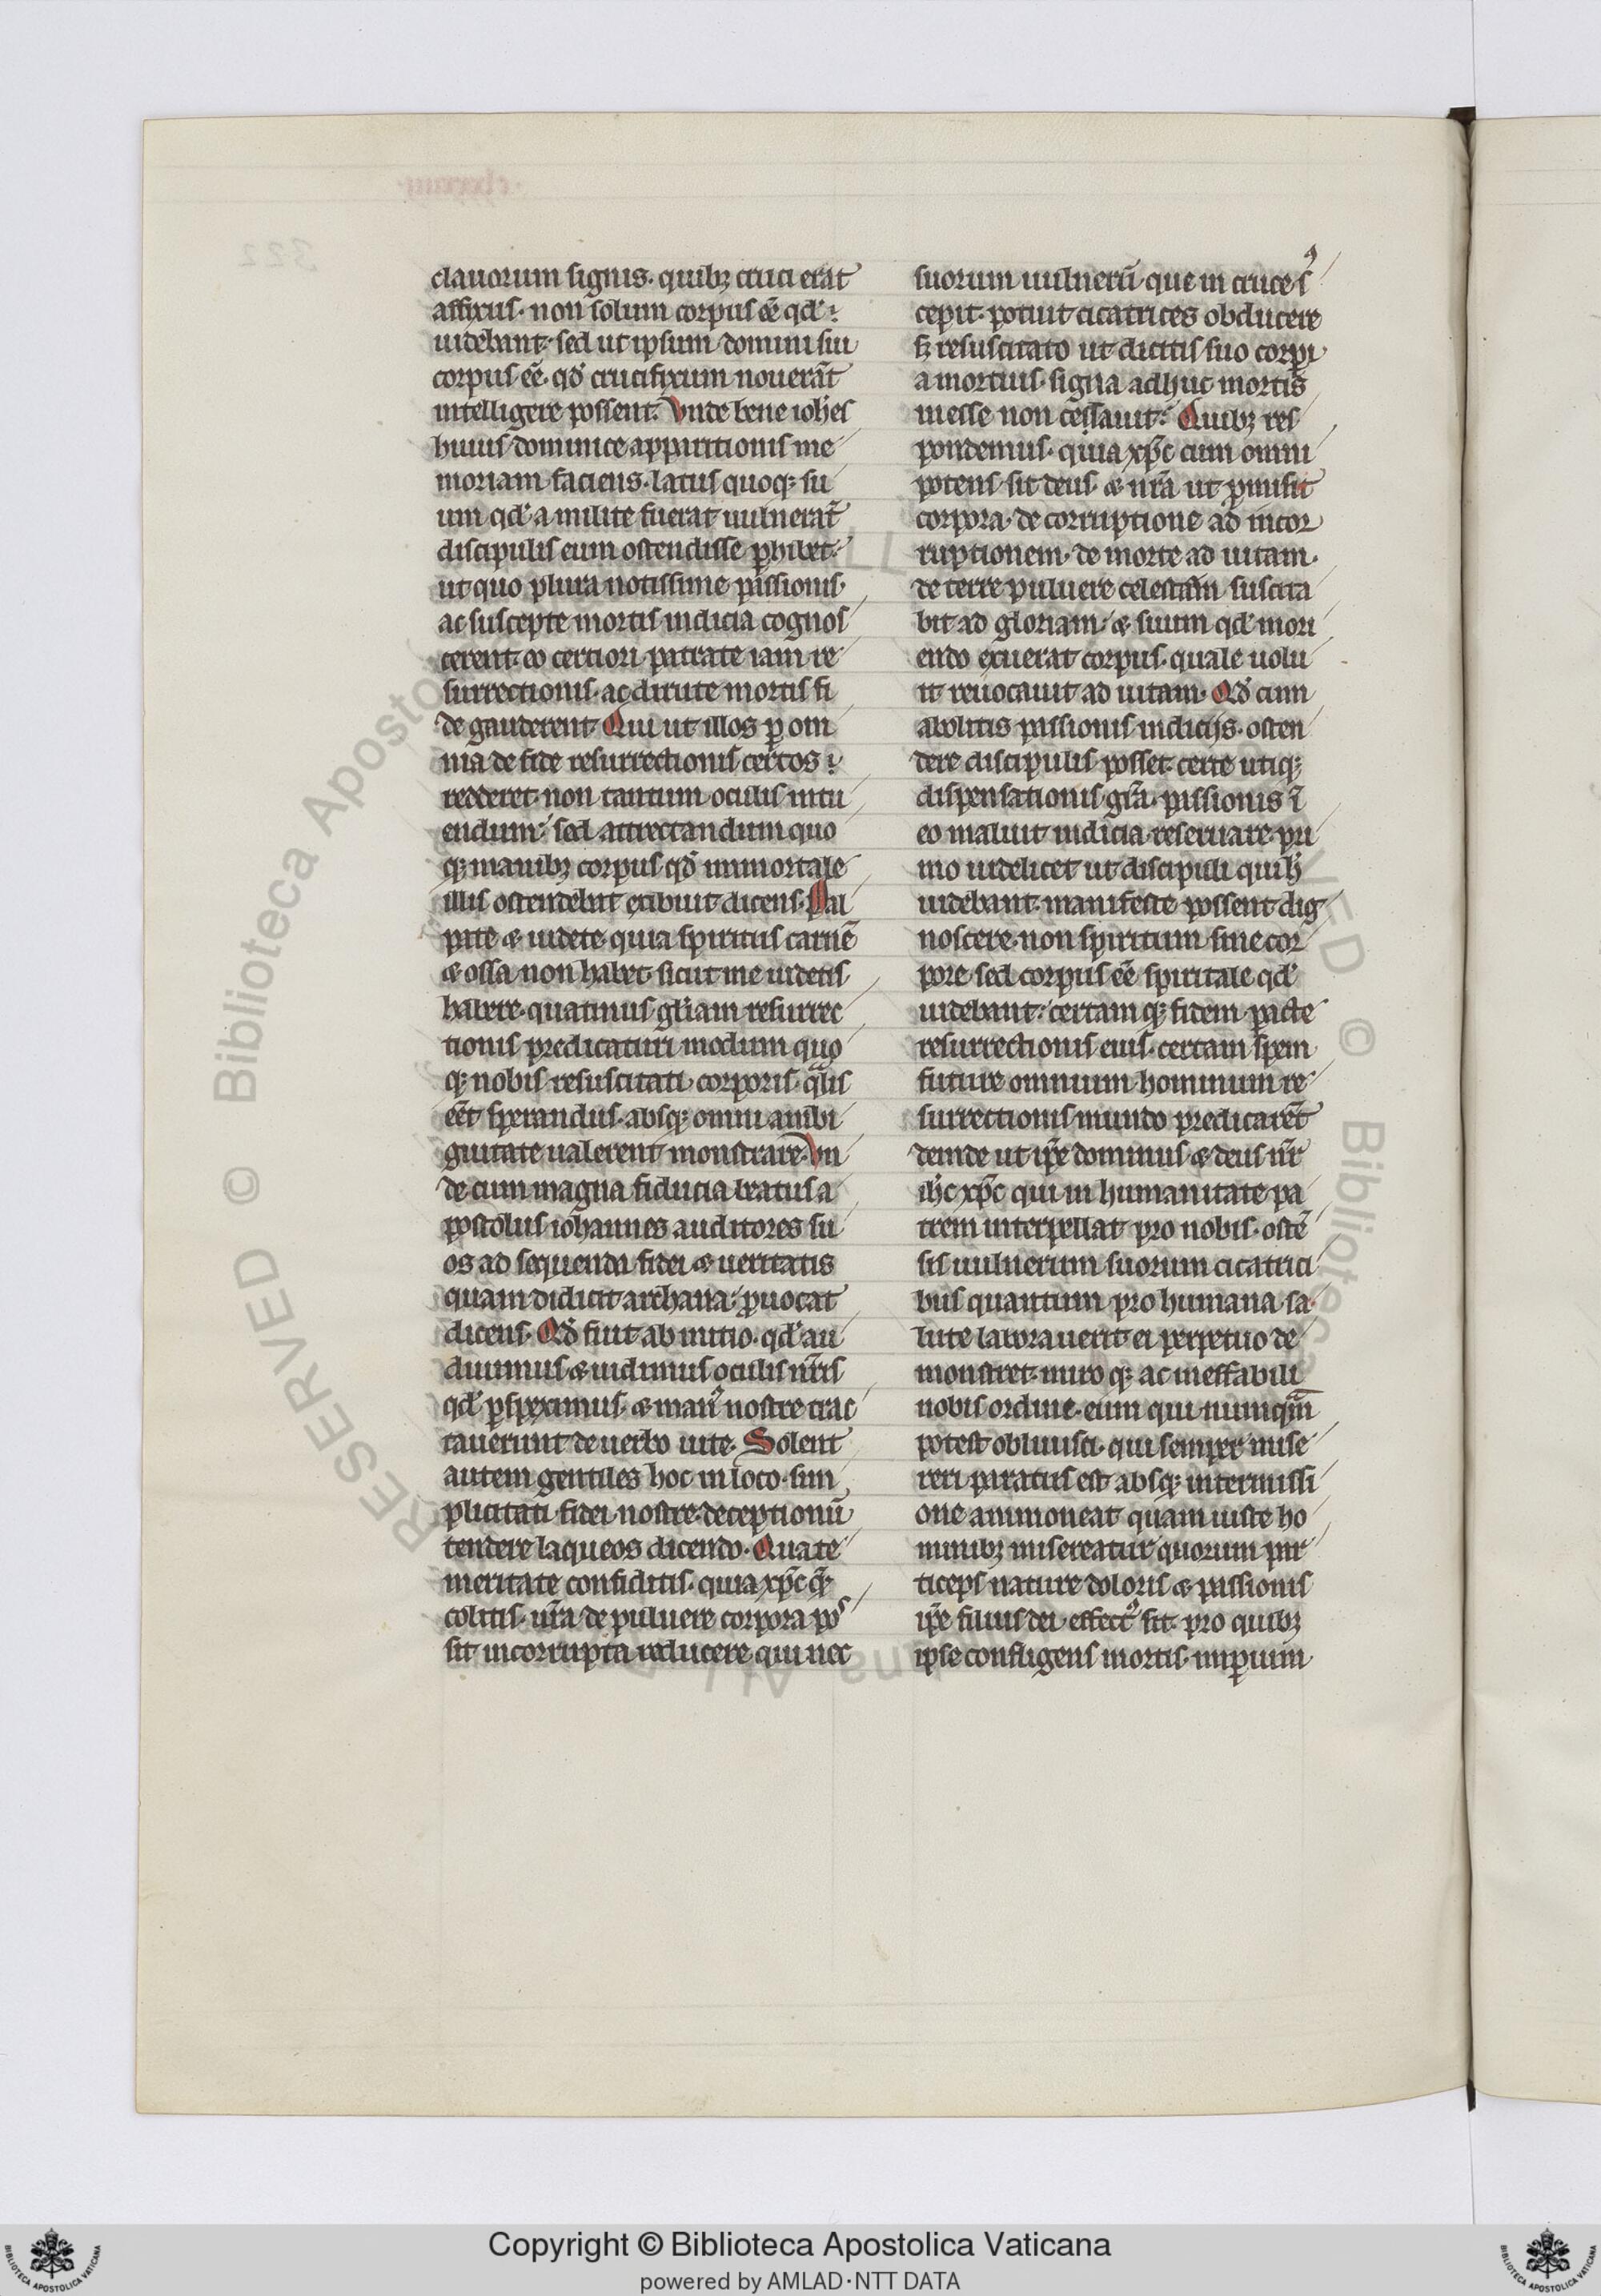 clauorum signis· quibꝫ cruci erat
affixus· non solum corpus eē qđ
uidebant· sed ut ipsum domini sui
corpus eē· qđ crucifixum nouerāt
intelligere possent. Vnde bene ioh̄es
huius dominice apparitionis me
moriam faciens· latus quoqꝫ su
um qđ a milite fuerat uulneratᷓ
discipulis eum ostendisse ꝑhibet·
ut quo plura notissime passionis
ac suscepte mortis indicia cognos
cerent· eo certiori patrate iam re
surrectionis· ac dirute mortis fi
de gauderent Qui ut illos ꝑ om
nia de fide resurrectionis certos
redderet· non tantum oculis intu
endum· sed attrectandum quo
qꝫ manibꝫ corpus qđ inmortale
illis ostendebat exibuit dicens· Pal
pate ⁊ uidete quia spiritus carnē
⁊ ossa non habet sicut me uidetis
habere· quatinus gl̄iam resurrec
tionis predicaturi modum quo
qꝫ nobis resuscitati corporis· qͣlis
eēt sperandus· absqꝫ omni ambi
guitate ualerent monstrare· Vn
de cum magna fiducia beatus a
postolus iohannes auditores su
os ad sequenda fidei ⁊ ueritatis
quam didicit archana· ꝓuocat
dicens· Qđ fuit ab initio· qđ au
diuimus ⁊ uidimus oculis nr̄is
qđ ꝑspeximus· ⁊ manꝰ nostre trac
tauerunt de uerbo uite· Solent
autem gentiles hoc in loco· sim
plicitati fidei nostre deceptionū
tendere laqueos dicendo· Qua te
meritate confiditis· quia xp̄c quē
colitis· ur̄a de puluere corpora pos
sit incorrupta reducere· qui nec
suorum uulnerū que in cruce sꝰ
cepit· potuit cicatrices obducere
sꝫ resuscitato ut dicitis suo corpi
a mortuis· signa adhuc mortis
inesse non cessauit· Quibꝫ res
pondemus· quia xp̄c cum omni
potens sit deus· ⁊ nr̄a ut ꝓmisit
corpora· de corruptione ad incor
ruptionem· de morte ad uitam·
de terre puluere celestam suscita
bit ad gloriam· ⁊ suum qđ mori
endo exuerat corpus· quale uolu
it reuocauit ad uitam· Qđ cum
abolitis passionis indicijs· osten
dere discipulis posset· certe utiqꝫ
dispensationis gr̄a· passionis ī
eo maluit indicia reseruare· pri
mo uidelicet ut discipuli quibꝫ
uidebant· manifeste possent dig
noscere· non spiritum sine cor
pore sed corpus eē spiritale qđ
uidebant· certamqꝫ fidem ꝑacte
resurrectionis eius· certam spem
future omnium hominum re
surrectionis mundo predicarēt
deinde ut ip̄e dominus ⁊ deus nr̄
ih̄c xp̄c qui in humanitate pa
trem interpellat pro nobis· ostē
sis uulnerum suorum cicatrici
bus quantum pro humana sa
lute laborauerit ei perpetuo de
monstret· miro qꝫ ac ineffabili
nobis ordine· eum qui numqᷓm
potest obliuisci· qui semper mise
reri paratus est absqꝫ intermissi
one ammoneat quam iuste ho
minibꝫ misereatur quorum par
ticeps nature doloris ⁊ passionis
ip̄e filius dei effectꝰ sit· pro quibꝫ
ipse confligens mortis imꝑium
RESERVED © Biblioteca Aposto
Copyright © Biblioteca Apostolica Vaticana
powered by AMLAD·NTT DATA